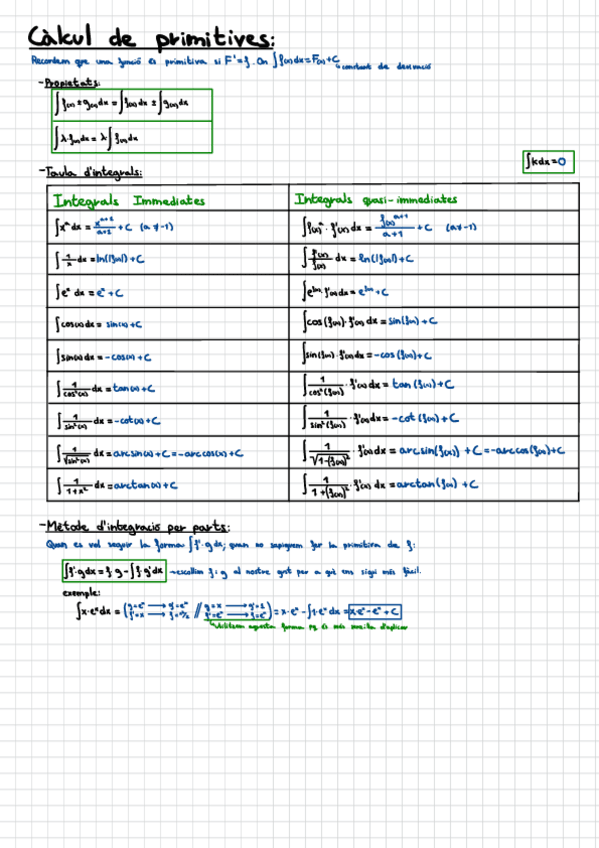 Càlcul de primitives:
Recordem que una funció és primitiva si F' = f. On ∫f(x)dx = F(x)+C
constant de derivació
-Propietats:
∫f(x) ± g(x) dx = ∫f(x) dx ± ∫g(x) dx
∫λ·f(x) dx = λ∫f(x) dx
∫k dx = 0
-Taula d'integrals:
Integrals Immediates | Integrals quasi-immediates
∫xᵃ dx = xᵃ⁺¹/(a+1) + C (a ≠ -1) | ∫f(x)ᵃ · f'(x) dx = f(x)ᵃ⁺¹/(a+1) + C (a ≠ -1)
∫1/x dx = ln(|f(x)|) + C | ∫f'(x)/f(x) dx = ln(|f(x)|) + C
∫eˣ dx = eˣ + C | ∫e^f(x) · f'(x) dx = e^f(x) + C
∫cos(x) dx = sin(x) + C | ∫cos(f(x)) · f'(x) dx = sin(f(x)) + C
∫sin(x) dx = -cos(x) + C | ∫sin(f(x)) · f'(x) dx = -cos(f(x)) + C
∫1/cos²(x) dx = tan(x) + C | ∫1/cos²(f(x)) · f'(x) dx = tan(f(x)) + C
∫1/sin²(x) dx = -cot(x) + C | ∫1/sin²(f(x)) · f'(x) dx = -cot(f(x)) + C
∫1/√sin²(x) dx = arcsin(x) + C = -arccos(x) + C | ∫1/√(1-(f(x))²) · f'(x) dx = arcsin(f(x)) + C = -arccos(f(x)) + C
∫1/(1+x²) dx = arctan(x) + C | ∫1/(1+(f(x))²) · f'(x) dx = arctan(f(x)) + C
-Mètode d'integració per parts:
Quan es vol seguir la forma ∫f'·g dx; quan no sapiguem fer la primitiva de f:
∫f'·g dx = f·g - ∫f·g' dx → escollim f i g al nostre gust per a què ens sigui més fàcil.
exemple:
∫x·eˣ dx = (g=eˣ → g'=eˣ // g=x → g'=1
f'=x → f=x²/2 // f'=eˣ → f=eˣ) = x·eˣ - ∫1·eˣ dx = x·eˣ - eˣ + C
utilitzem aquesta forma pq és més senzilla d'aplicar